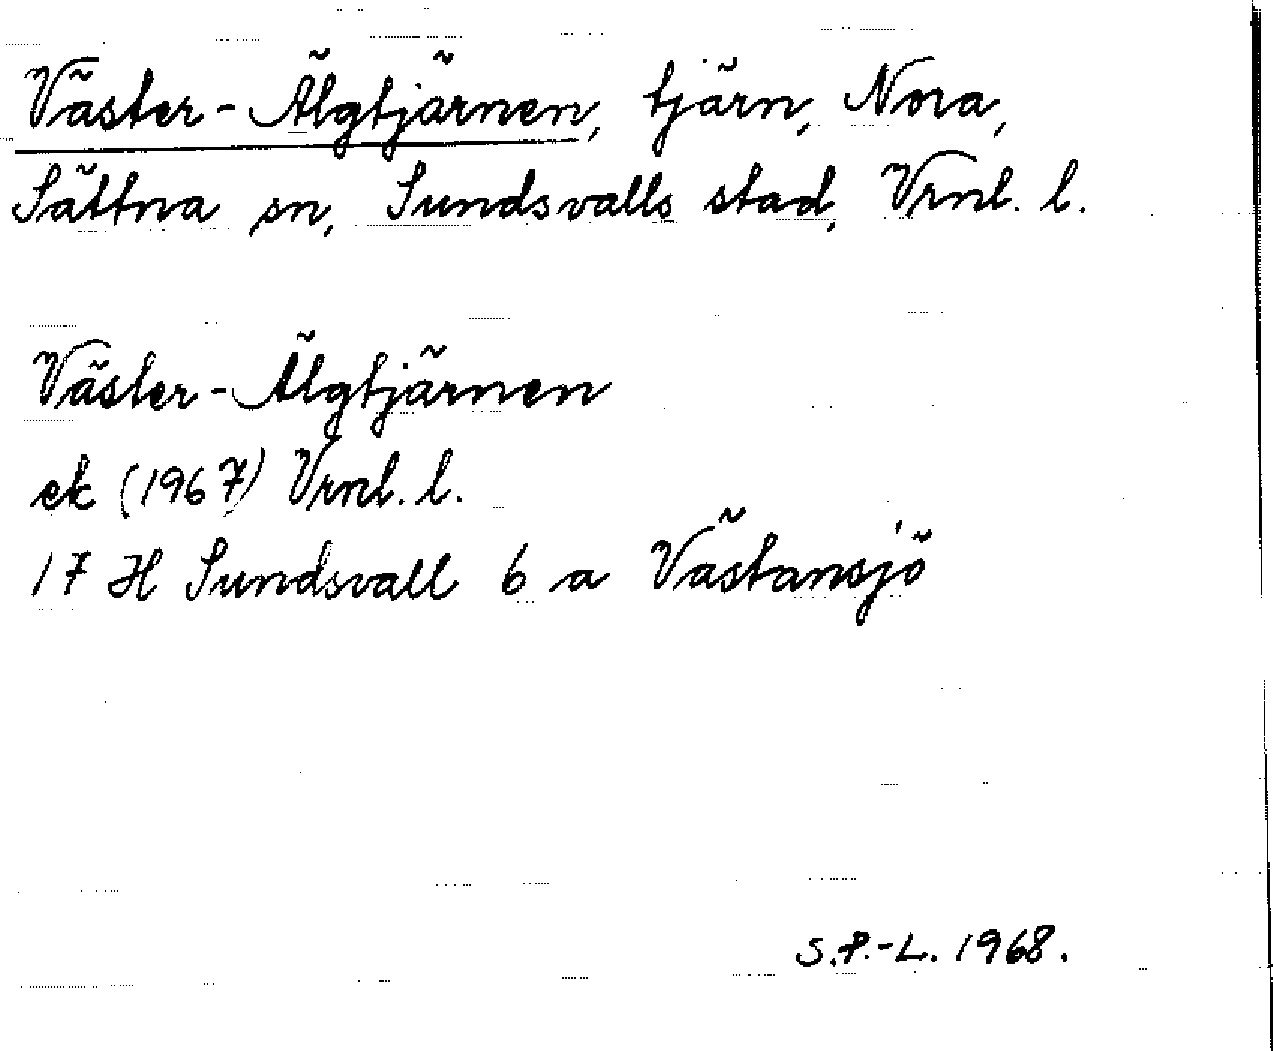 Väster-Älgtjärnen, tjärn, Nora,
Sättna sn, Sundsvalls stad, Vrnl. l.
Väster-Älgtjärnen
ek (1967) Vrnl. l.
17 H Sundsvall 6 a Västansjö
S.P.-L. 1968.